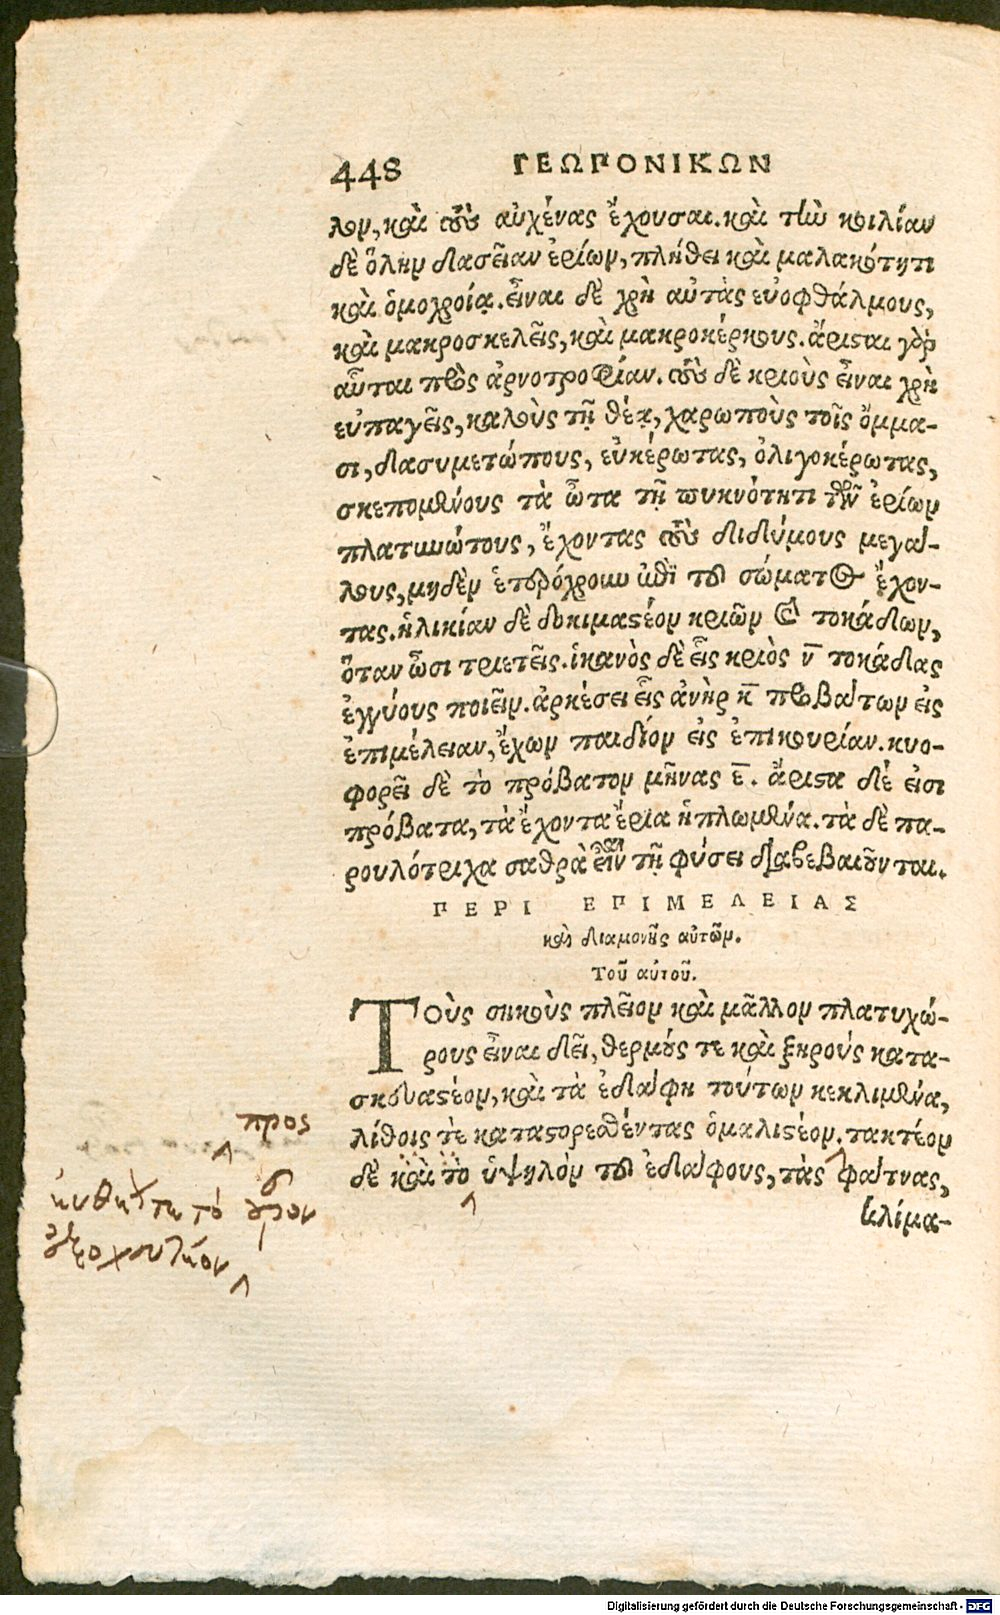 448 ΓΕΩΡΟΝΙΚΩΝ
λον, καὶ τοὺς αὐχένας ἔχουσαι. καὶ τὴν κοιλίαν
δὲ ὅλην δασεῖαν ἐρίων, πλήθει καὶ μαλακότητι
καὶ ὁμοχροίᾳ. εἶναι δὲ χρὴ αὐτὰς εὐοφθάλμους,
καὶ μακροσκελεῖς, καὶ μακροκέρκους. ἄρισται γὰρ
αὗται πρὸς ἀρνοτροφίαν. τοὺς δὲ κριοὺς εἶναι χρὴ
εὐπαγεῖς, καλοὺς τῇ θέᾳ, χαρωποὺς τοῖς ὄμμα-
σι, δασυμετώπους, εὐκέρωτας, ὀλιγοκέρωτας,
σκεπομένους τὰ ὦτα τῇ πυκνότητι τῶν ἐρίων
πλατυνώτους, ἔχοντας τοὺς διδύμους μεγά-
λους, μηδὲν ἑτερόχρουν ἐπὶ τοῦ σώματος ἔχον-
τας. ἡλικίαν δὲ δοκιμαστέον κριῶν καὶ τοκάδων,
ὅταν ὦσι τριετεῖς. ἱκανὸς δὲ εἷς κριὸς ν̅ τοκάδας
ἐγγύους ποιεῖν. ἀρκέσει εἷς ἀνὴρ κ̅ προβάτων εἰς
ἐπιμέλειαν, ἔχων παιδίον εἰς ἐπικουρίαν. κυο-
φορεῖ δὲ τὸ πρόβατον μῆνας ε̅. ἄριστα δέ εἰσι
πρόβατα, τὰ ἔχοντα ἔρια ἡπλωμένα. τὰ δὲ πα-
ρουλότριχα σαθρὰ εἶναι τῇ φύσει διαβεβαιοῦνται.
ΠΕΡΙ ΕΠΙΜΕΛΕΙΑΣ
καὶ διαμονῆς αὐτῶν.
Τοῦ αὐτοῦ.
Τοὺς σηκοὺς πλεῖον καὶ μᾶλλον πλατυχώ-
ρους εἶναι δεῖ, θερμούς τε καὶ ξηροὺς κατα-
σκευαστέον, καὶ τὰ ἐδάφη τούτων κεκλιμένα,
λίθοις τε καταστορεσθέντας ὁμαλιστέον. τακτέον
δὲ καὶ τὸ ὑψηλὸν τοῦ ἐδάφους, τὰς φάτνας,
κλίμα-
προς
Digitalisierung gefördert durch die Deutsche Forschungsgemeinschaft - DFG